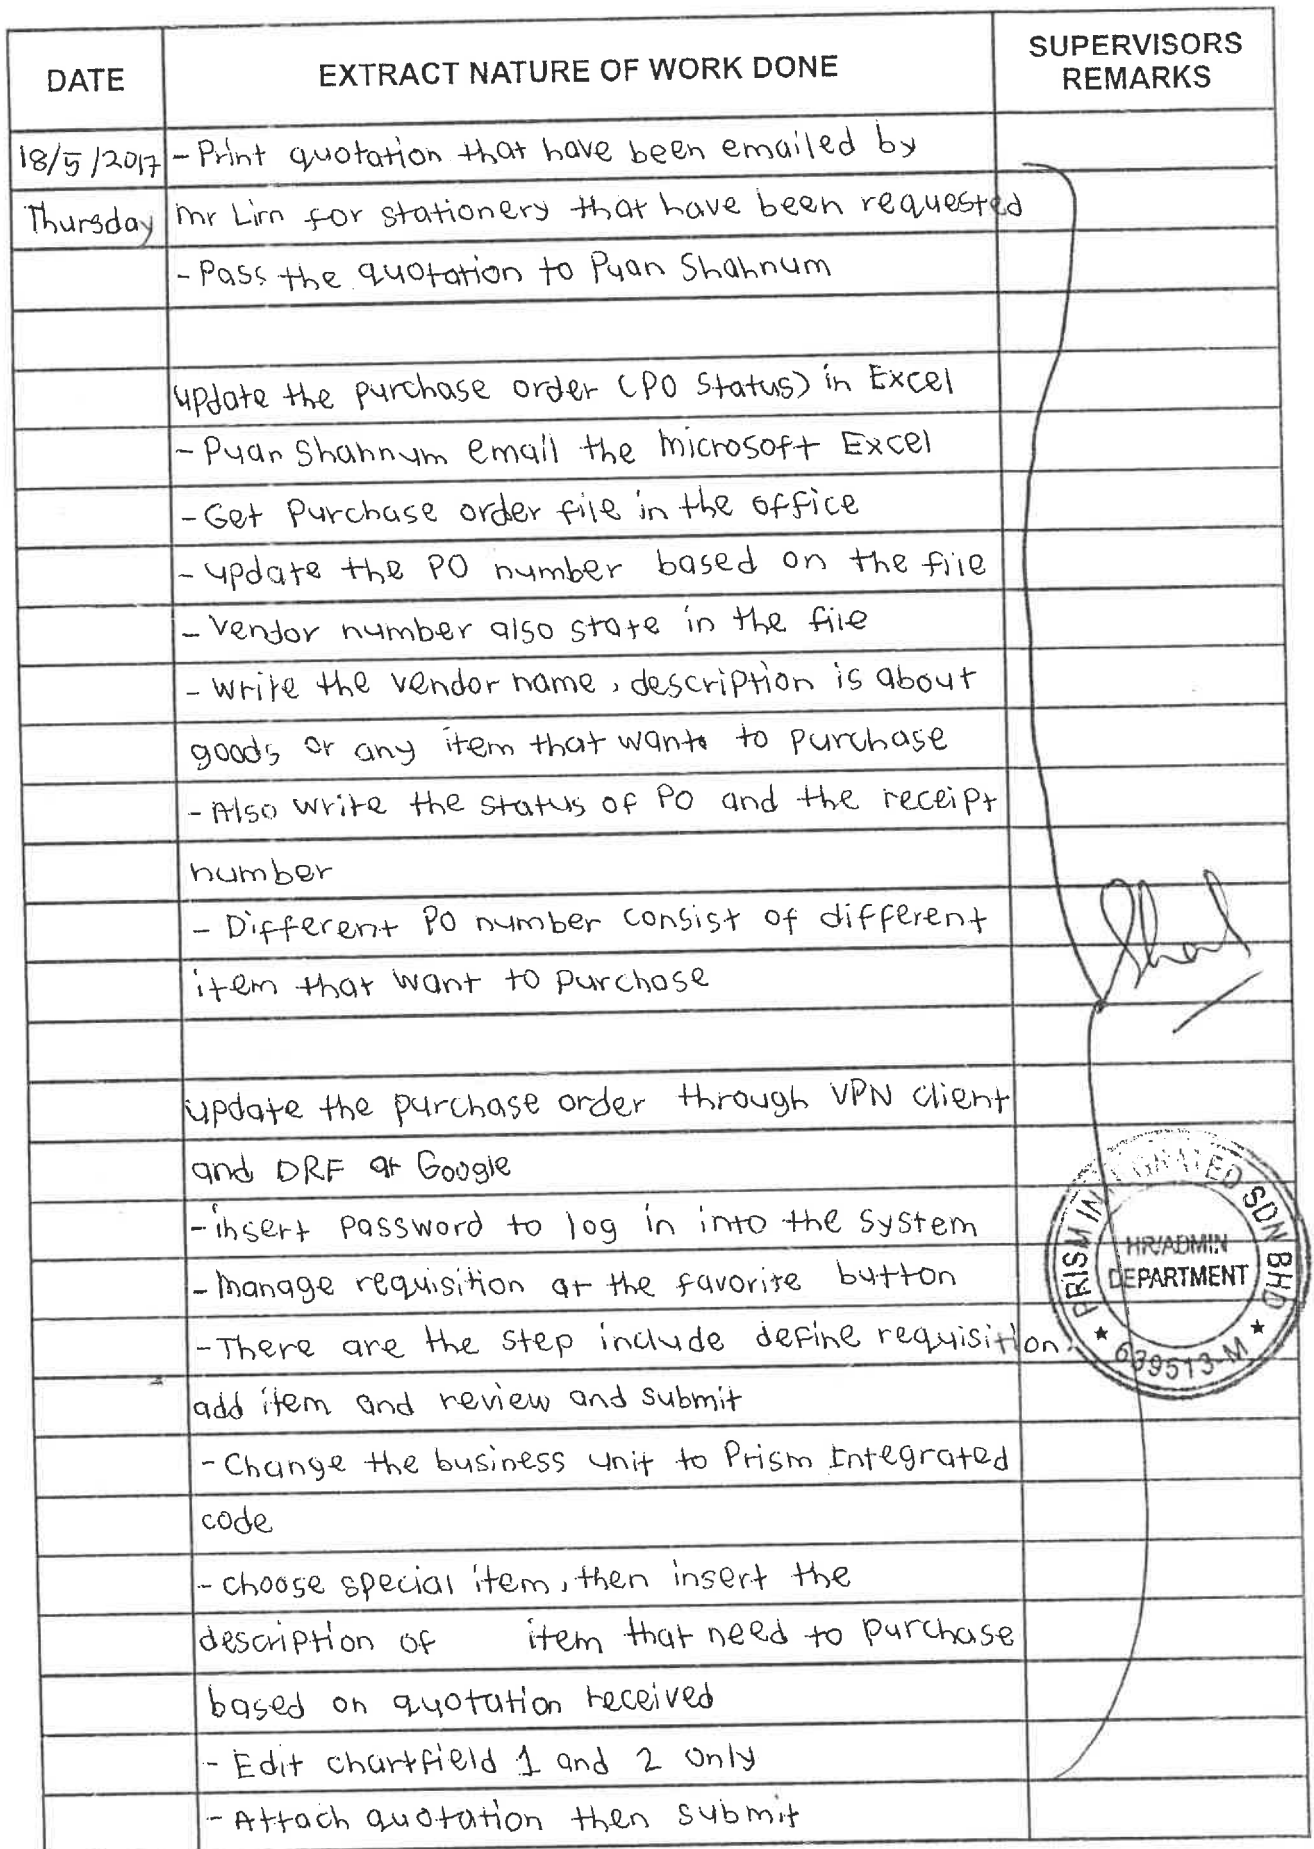 DATE EXTRACT NATURE OF WORK DONE SUPERVISORS REMARKS
18/5/2017 - Print quotation that have been emailed by
Thursday Mr Lim for stationery that have been requested
- Pass the quotation to Puan Shahnum
update the purchase order (PO Status) in Excel
- Puan Shahnum email the Microsoft Excel
- Get Purchase order file in the office
- update the PO number based on the file
- Vendor number also state in the file
- Write the vendor name, description is about
goods or any item that want to purchase
- Also write the status of PO and the receipt
number
- Different PO number consist of different
item that want to purchase
update the purchase order through VPN client
and DRF at Google
- insert password to log in into the system
- Manage requisition at the favorite button
- There are the step include define requisition,
add item and review and submit
- Change the business unit to Prism Integrated
code
- choose special item, then insert the
description of item that need to purchase
based on quotation received
- Edit chartfield 1 and 2 only
- Attach quotation then submit
PRISM INTEGRATED SDN BHD
HR/ADMIN
DEPARTMENT
★ 639513-M ★